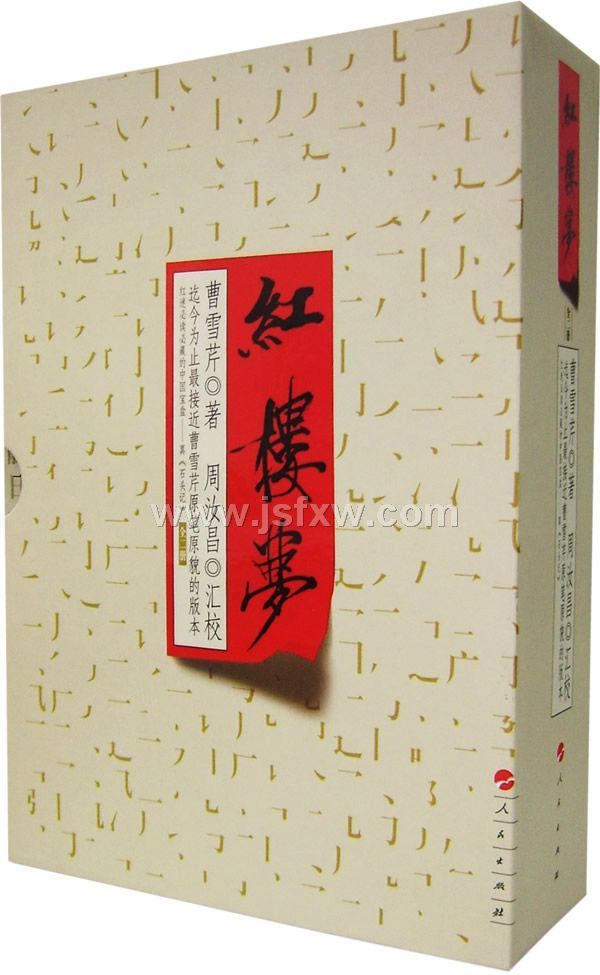 紅樓夢
曹雪芹◎著 周汝昌◎汇校
迄今为止最接近曹雪芹原笔原貌的版本
红迷必读必藏的中国宝盒——真《石头记》
人民出版社
www.jsfxw.com
紅樓夢
人民出版社